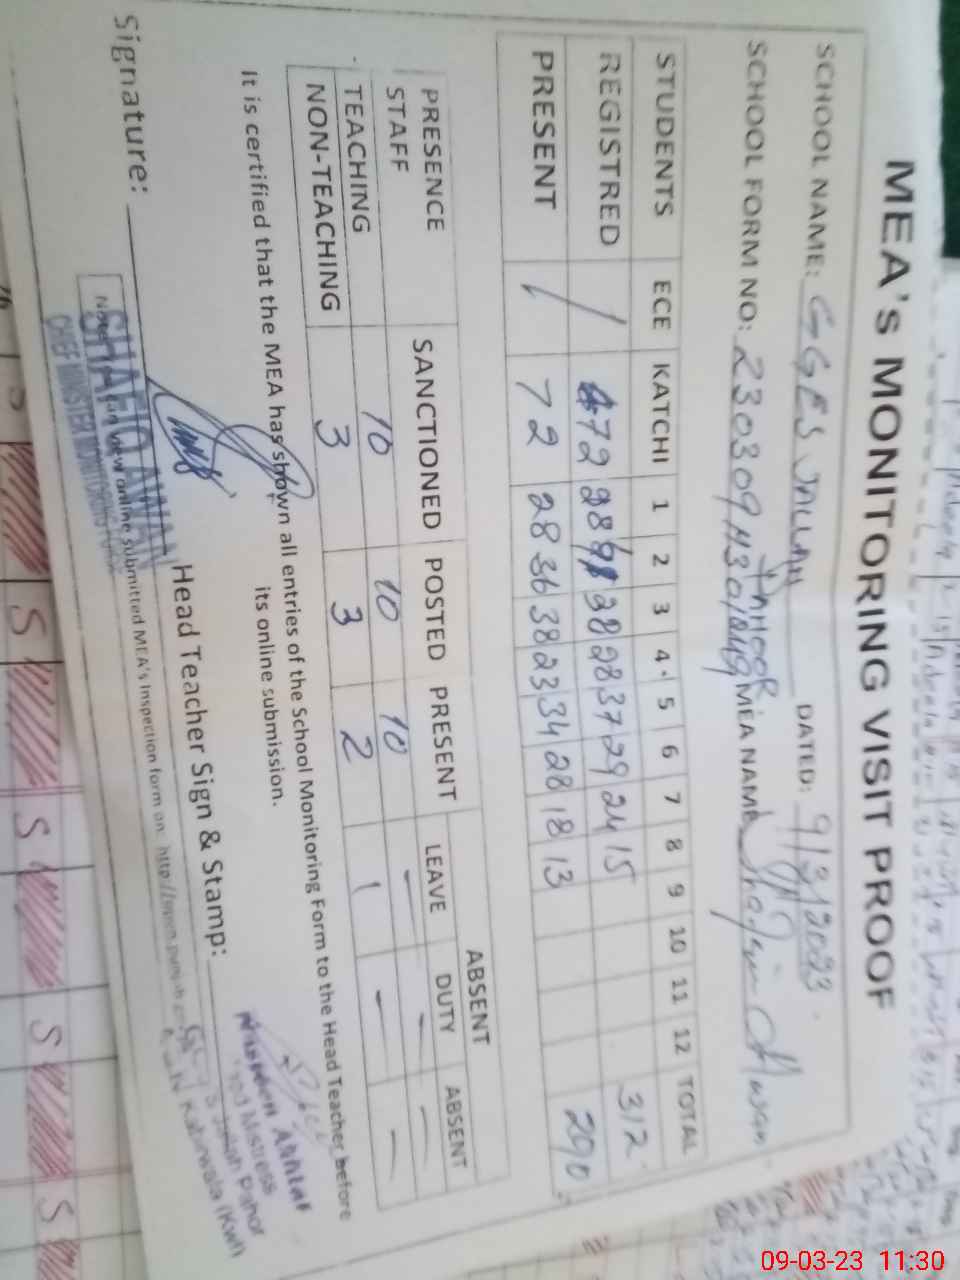 MEA's MONITORING VISIT PROOF
SCHOOL NAME: GGES DATED: 9/3/2023
SCHOOL FORM NO: MEA NAME Shafiq Awan
STUDENTS ECE KATCHI 1 2 3 4 5 6 7 8 9 10 11 12 TOTAL
REGISTRED / 72 28 38 28 37 29 24 15 312
PRESENT / 72 28 36 38 23 34 28 18 13 290
PRESENCE STAFF SANCTIONED POSTED PRESENT ABSENT
LEAVE DUTY ABSENT
TEACHING 10 10 10 — — —
NON-TEACHING 3 3 2 1 — —
It is certified that the MEA has shown all entries of the School Monitoring Form to the Head Teacher before
its online submission.
Signature: Head Teacher Sign & Stamp:
SHAFIQ AWAN
CHIEF MINISTER MONITORING
view online submitted MEA's Inspection form on:
09-03-23 11:30